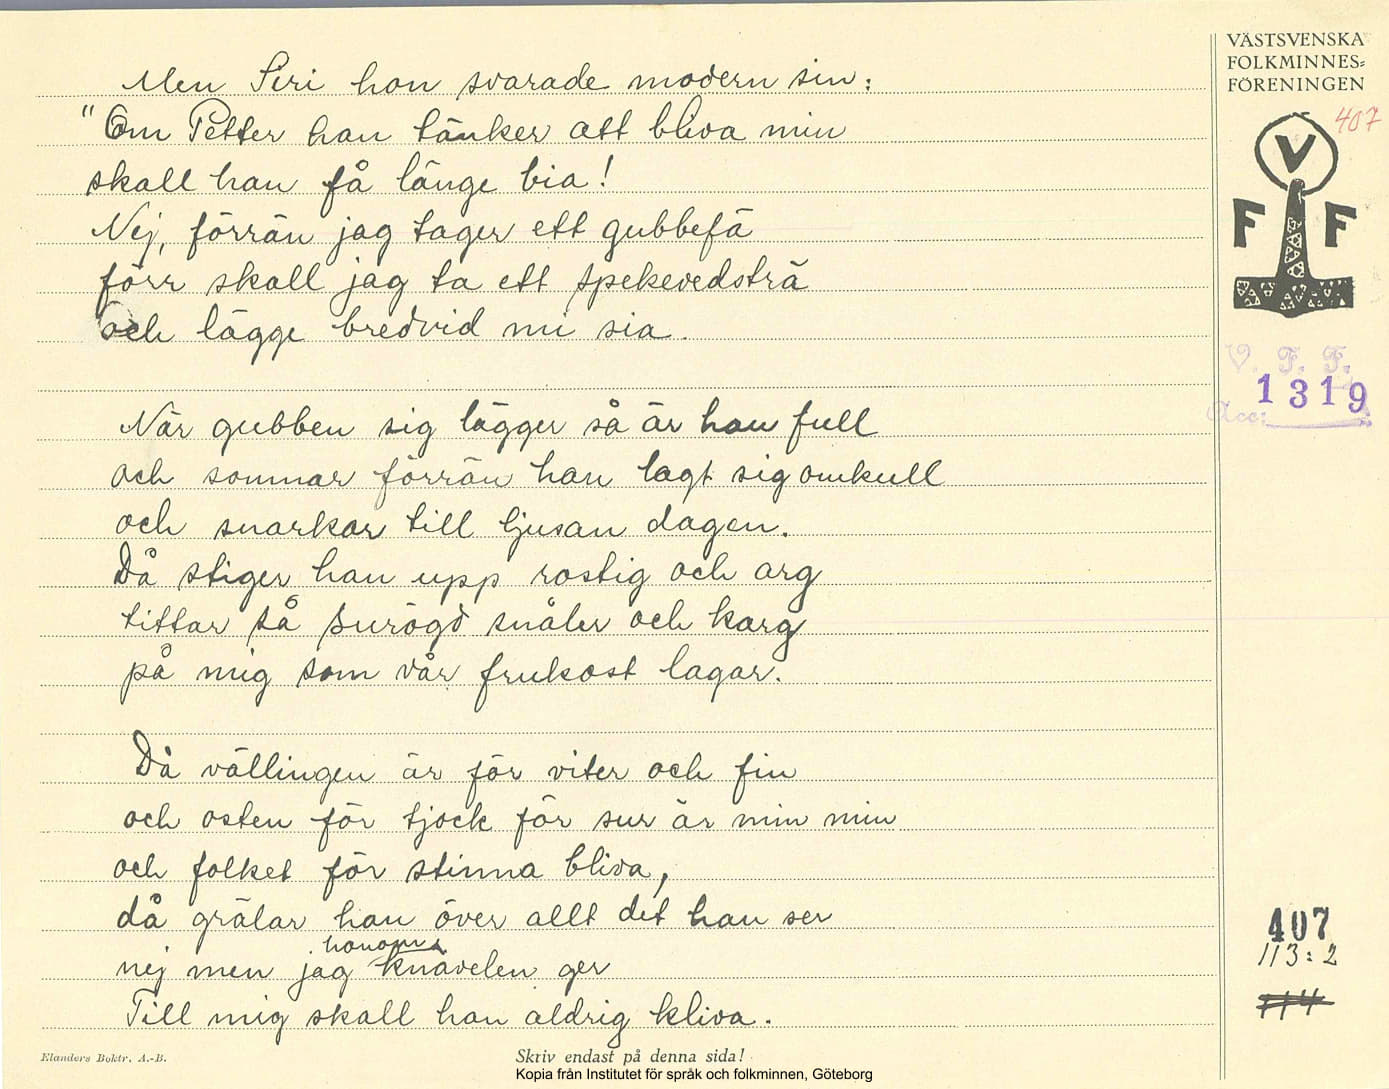 VÄSTSVENSKA
FOLKMINNES=
FÖRENINGEN
407
V
F F
V. F. F.
1319
Acc:
Men Siri hon svarade modern sin:
"Om Petter han tänker att bliva min
skall han få länge bia!
Nej, förrän jag tager ett gubbefä
förr skall jag ta ett spekevedsträ
och lägge bredvid mi sia.
När gubben sig lägger så är han full
och somnar förrän han lagt sig omkull
och snarkar till ljusan dagen.
Då stiger han upp rostig och arg
tittar så surögd snåler och karg
på mig som vår frukost lagar.
Då vällingen är för viter och fin
och osten för tjock för sur är min min
och folket för stinna bliva,
då grälar han över allt det han ser
honom
nej men jag knävelen ger
Till mig skall han aldrig kliva.
407
113:2
114
Elanders Boktr. A.-B.
Skriv endast på denna sida!
Kopia från Institutet för språk och folkminnen, Göteborg